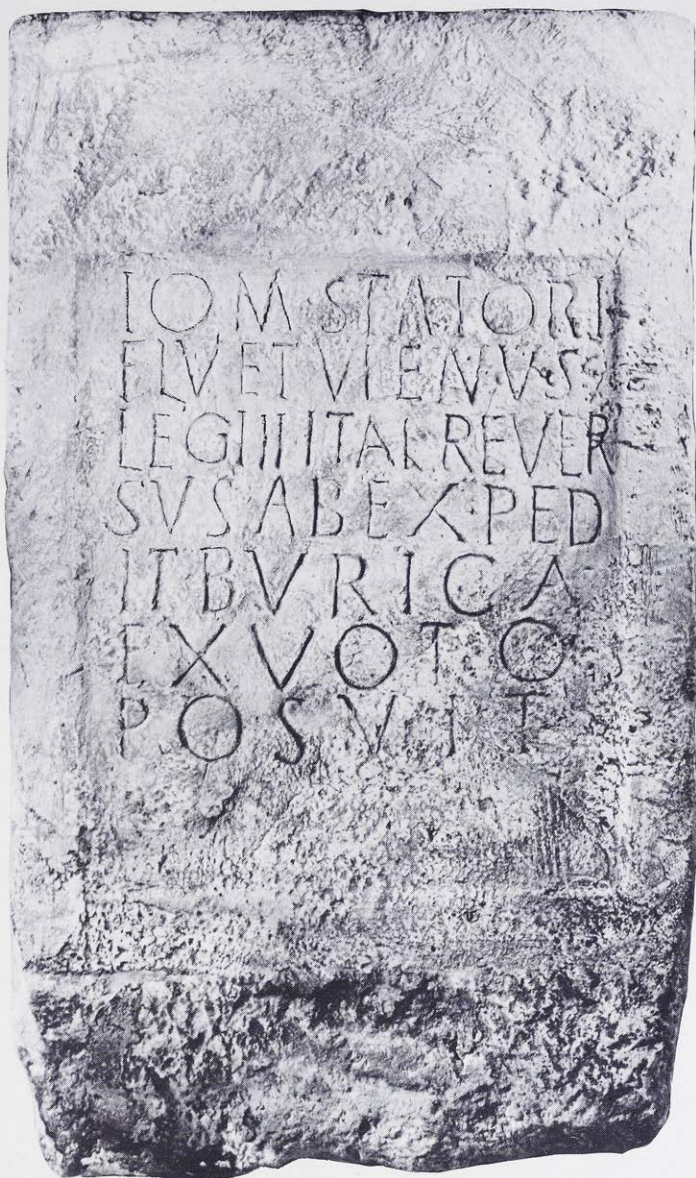 IOM STATORI
FLV ET VIENVS
LEG IIII ITAL REVER
SVS AB EXPED
IT BVRICA
EX VOTO
POSVIT